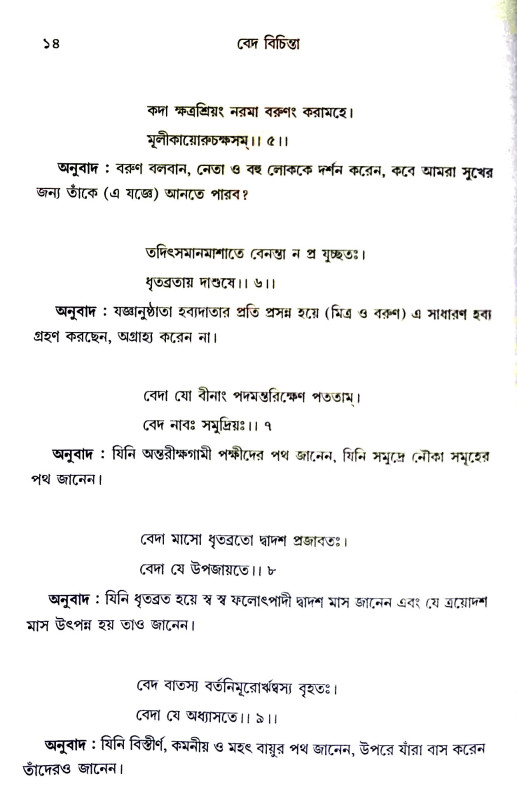 ১৪
বেদ বিচিন্তা
কদা ক্ষত্রশ্রিয়ং নরমা বরুণং করামহে।
মূলীকায়োরুচক্ষসম্।। ৫।।
অনুবাদ : বরুণ বলবান, নেতা ও বহু লোককে দর্শন করেন, কবে আমরা সুখের
জন্য তাঁকে (এ যজ্ঞে) আনতে পারব?
তদিৎসমানমাশাতে বেনন্তা ন প্র যুচ্ছতঃ।
ধৃতব্রতায় দাশুষে।। ৬।।
অনুবাদ : যজ্ঞানুষ্ঠাতা হব্যদাতার প্রতি প্রসন্ন হয়ে (মিত্র ও বরুণ) এ সাধারণ হব্য
গ্রহণ করছেন, অগ্রাহ্য করেন না।
বেদা যো বীনাং পদমন্তরিক্ষেণ পততাম্।
বেদ নাবঃ সমুদ্রিয়ঃ।। ৭
অনুবাদ : যিনি অন্তরীক্ষগামী পক্ষীদের পথ জানেন, যিনি সমুদ্রে নৌকা সমূহের
পথ জানেন।
বেদা মাসো ধৃতব্রতো দ্বাদশ প্রজাবতঃ।
বেদা যে উপজায়তে।। ৮
অনুবাদ : যিনি ধৃতব্রত হয়ে স্ব স্ব ফলোৎপাদী দ্বাদশ মাস জানেন এবং যে ত্রয়োদশ
মাস উৎপন্ন হয় তাও জানেন।
বেদ বাতস্য বর্তনিমূরোর্ঋষ্বস্য বৃহতঃ।
বেদা যে অধ্যাসতে।। ৯।।
অনুবাদ : যিনি বিস্তীর্ণ, কমনীয় ও মহৎ বায়ুর পথ জানেন, উপরে যাঁরা বাস করেন
তাঁদেরও জানেন।